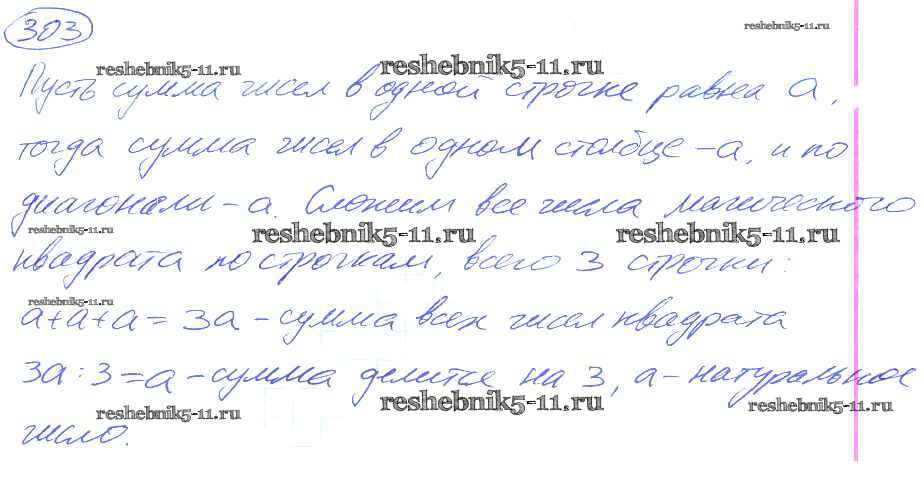 303
reshebnik5-11.ru
reshebnik5-11.ru reshebnik5-11.ru
Пусть сумма чисел в одной строчке равна а,
тогда сумма чисел в одном столбце - а, и по
диагонали - а. Сложим все числа магического
reshebnik5-11.ru reshebnik5-11.ru reshebnik5-11.ru
квадрата по строчкам, всего 3 строчки:
reshebnik5-11.ru
а+а+а = 3а - сумма всех чисел квадрата
3а : 3 = а - сумма делится на 3, а - натуральное
reshebnik5-11.ru reshebnik5-11.ru reshebnik5-11.ru
число.